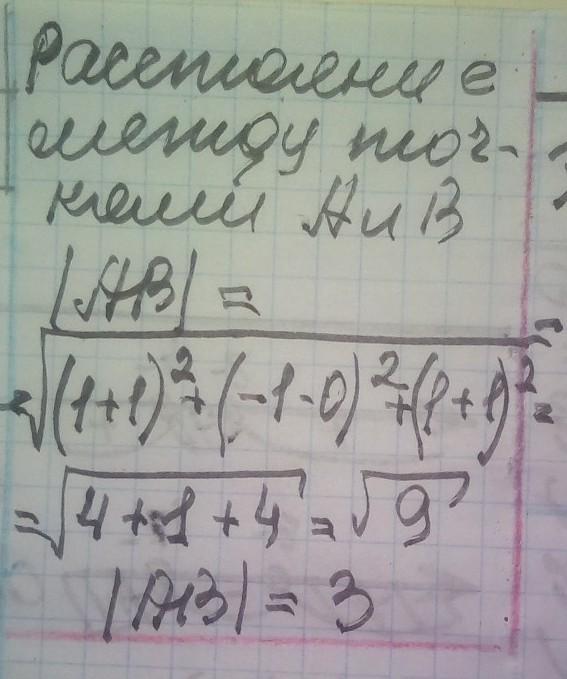 Расстояние
между точ-
ками A и B
|AB| =
= √((1+1)² + (-1-0)² + (1+1)²) =
= √(4+1+4) = √9
|AB| = 3